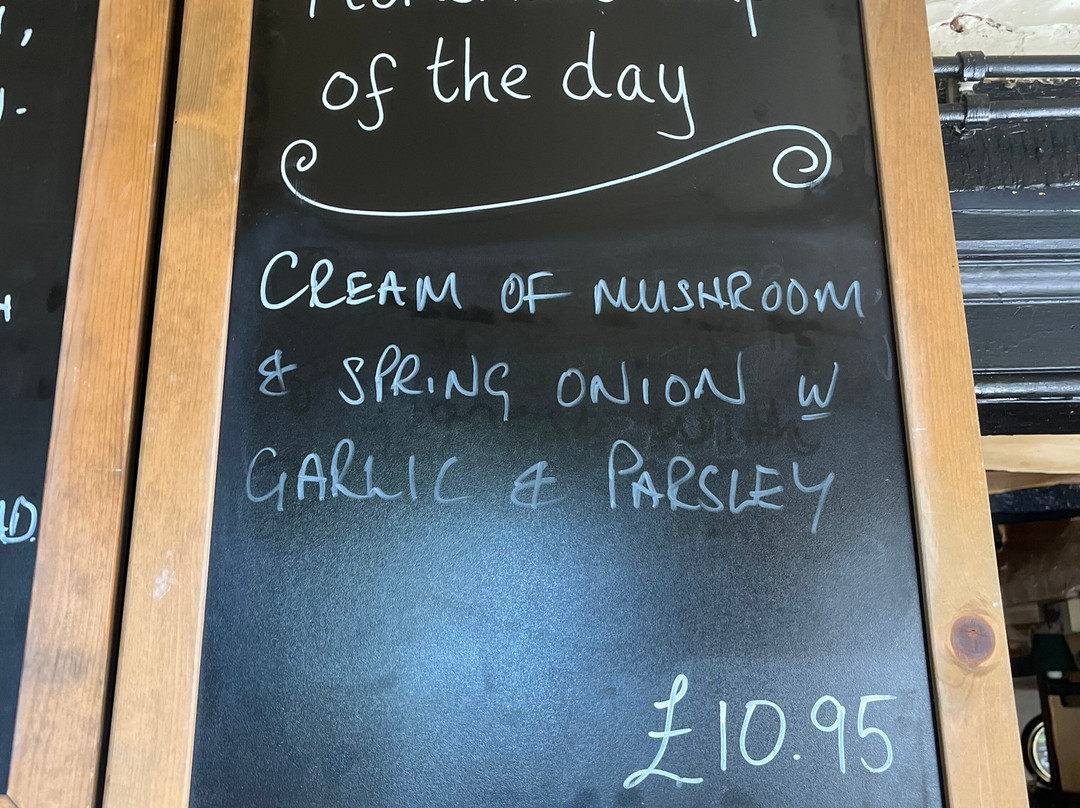 of the day
CREAM OF MUSHROOM
& SPRING ONION W
GARLIC & PARSLEY
£10.95